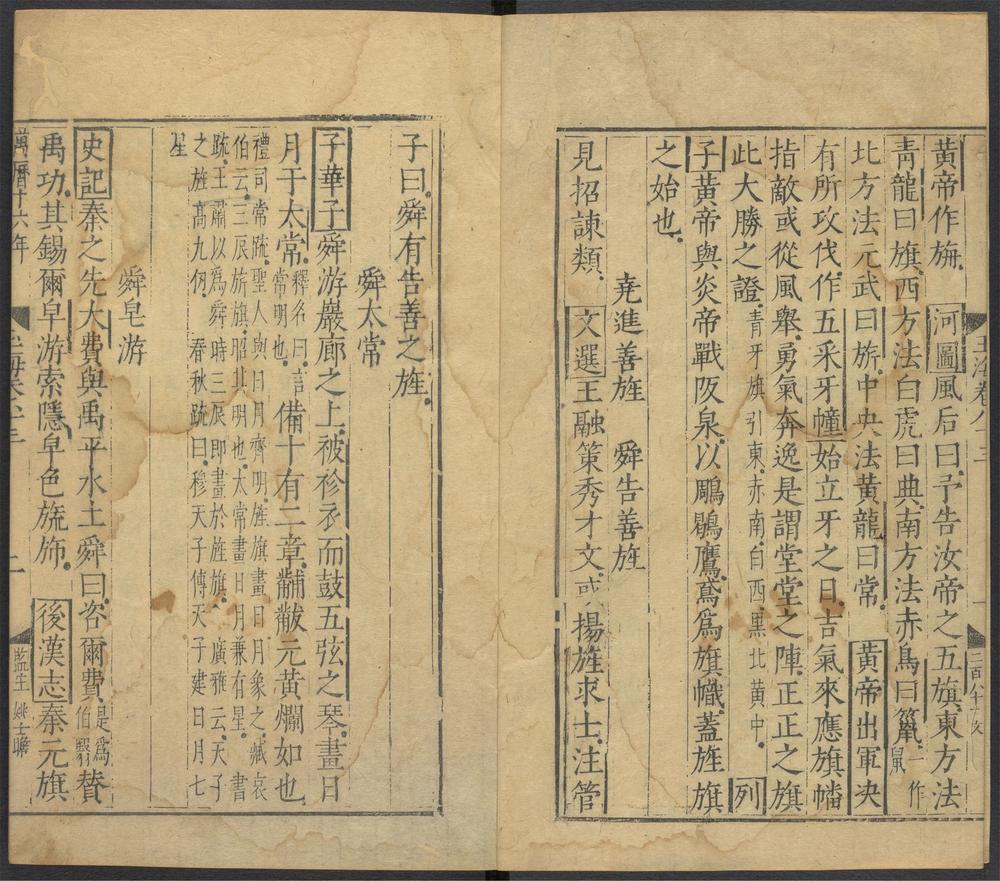 玉海卷八十三
黃帝作旃 河圖風后曰予告汝帝之五旗東方法
青龍曰旗西方法白虎曰典南方法赤鳥曰
北方法元武曰旂中央法黃龍曰常 黃帝出軍決
有所攻伐作五采牙幢始立牙之日吉氣來應旗幡
指敵或從風舉勇氣奔逸是謂堂堂之陣正正之旗
此大勝之證青牙旗引東赤南白西黑北黃中 列
子黃帝與炎帝戰阪泉以鵰鶡鷹鳶爲旗幟蓋旌旗
之始也
堯進善旌 舜告善旌
見招諫類 文選王融策秀才文或揚旌求士注管
子曰舜有告善之旌
舜太常
子華子舜游巖廊之上被袗衣而鼓五弦之琴畫日
月于太常釋名曰言常明也備十有二章黼黻元黃爛如也
禮司常疏聖人與日月齊明旌旗畫日月象之臧哀
伯云三辰旂旗昭其明也太常畫日月兼有星 書
疏王肅以爲舜時三辰即畫於旌旗 廣雅云天子
之旌高九仞 春秋疏曰穆天子傳天子建日月七
星
舜皂游
史記秦之先大費與禹平水土舜曰咨爾費是爲伯翳贊
禹功其錫爾皁游索隱皁色旒斾 後漢志秦元旗
萬曆十六年 玉海卷八十三 二 監生姚士